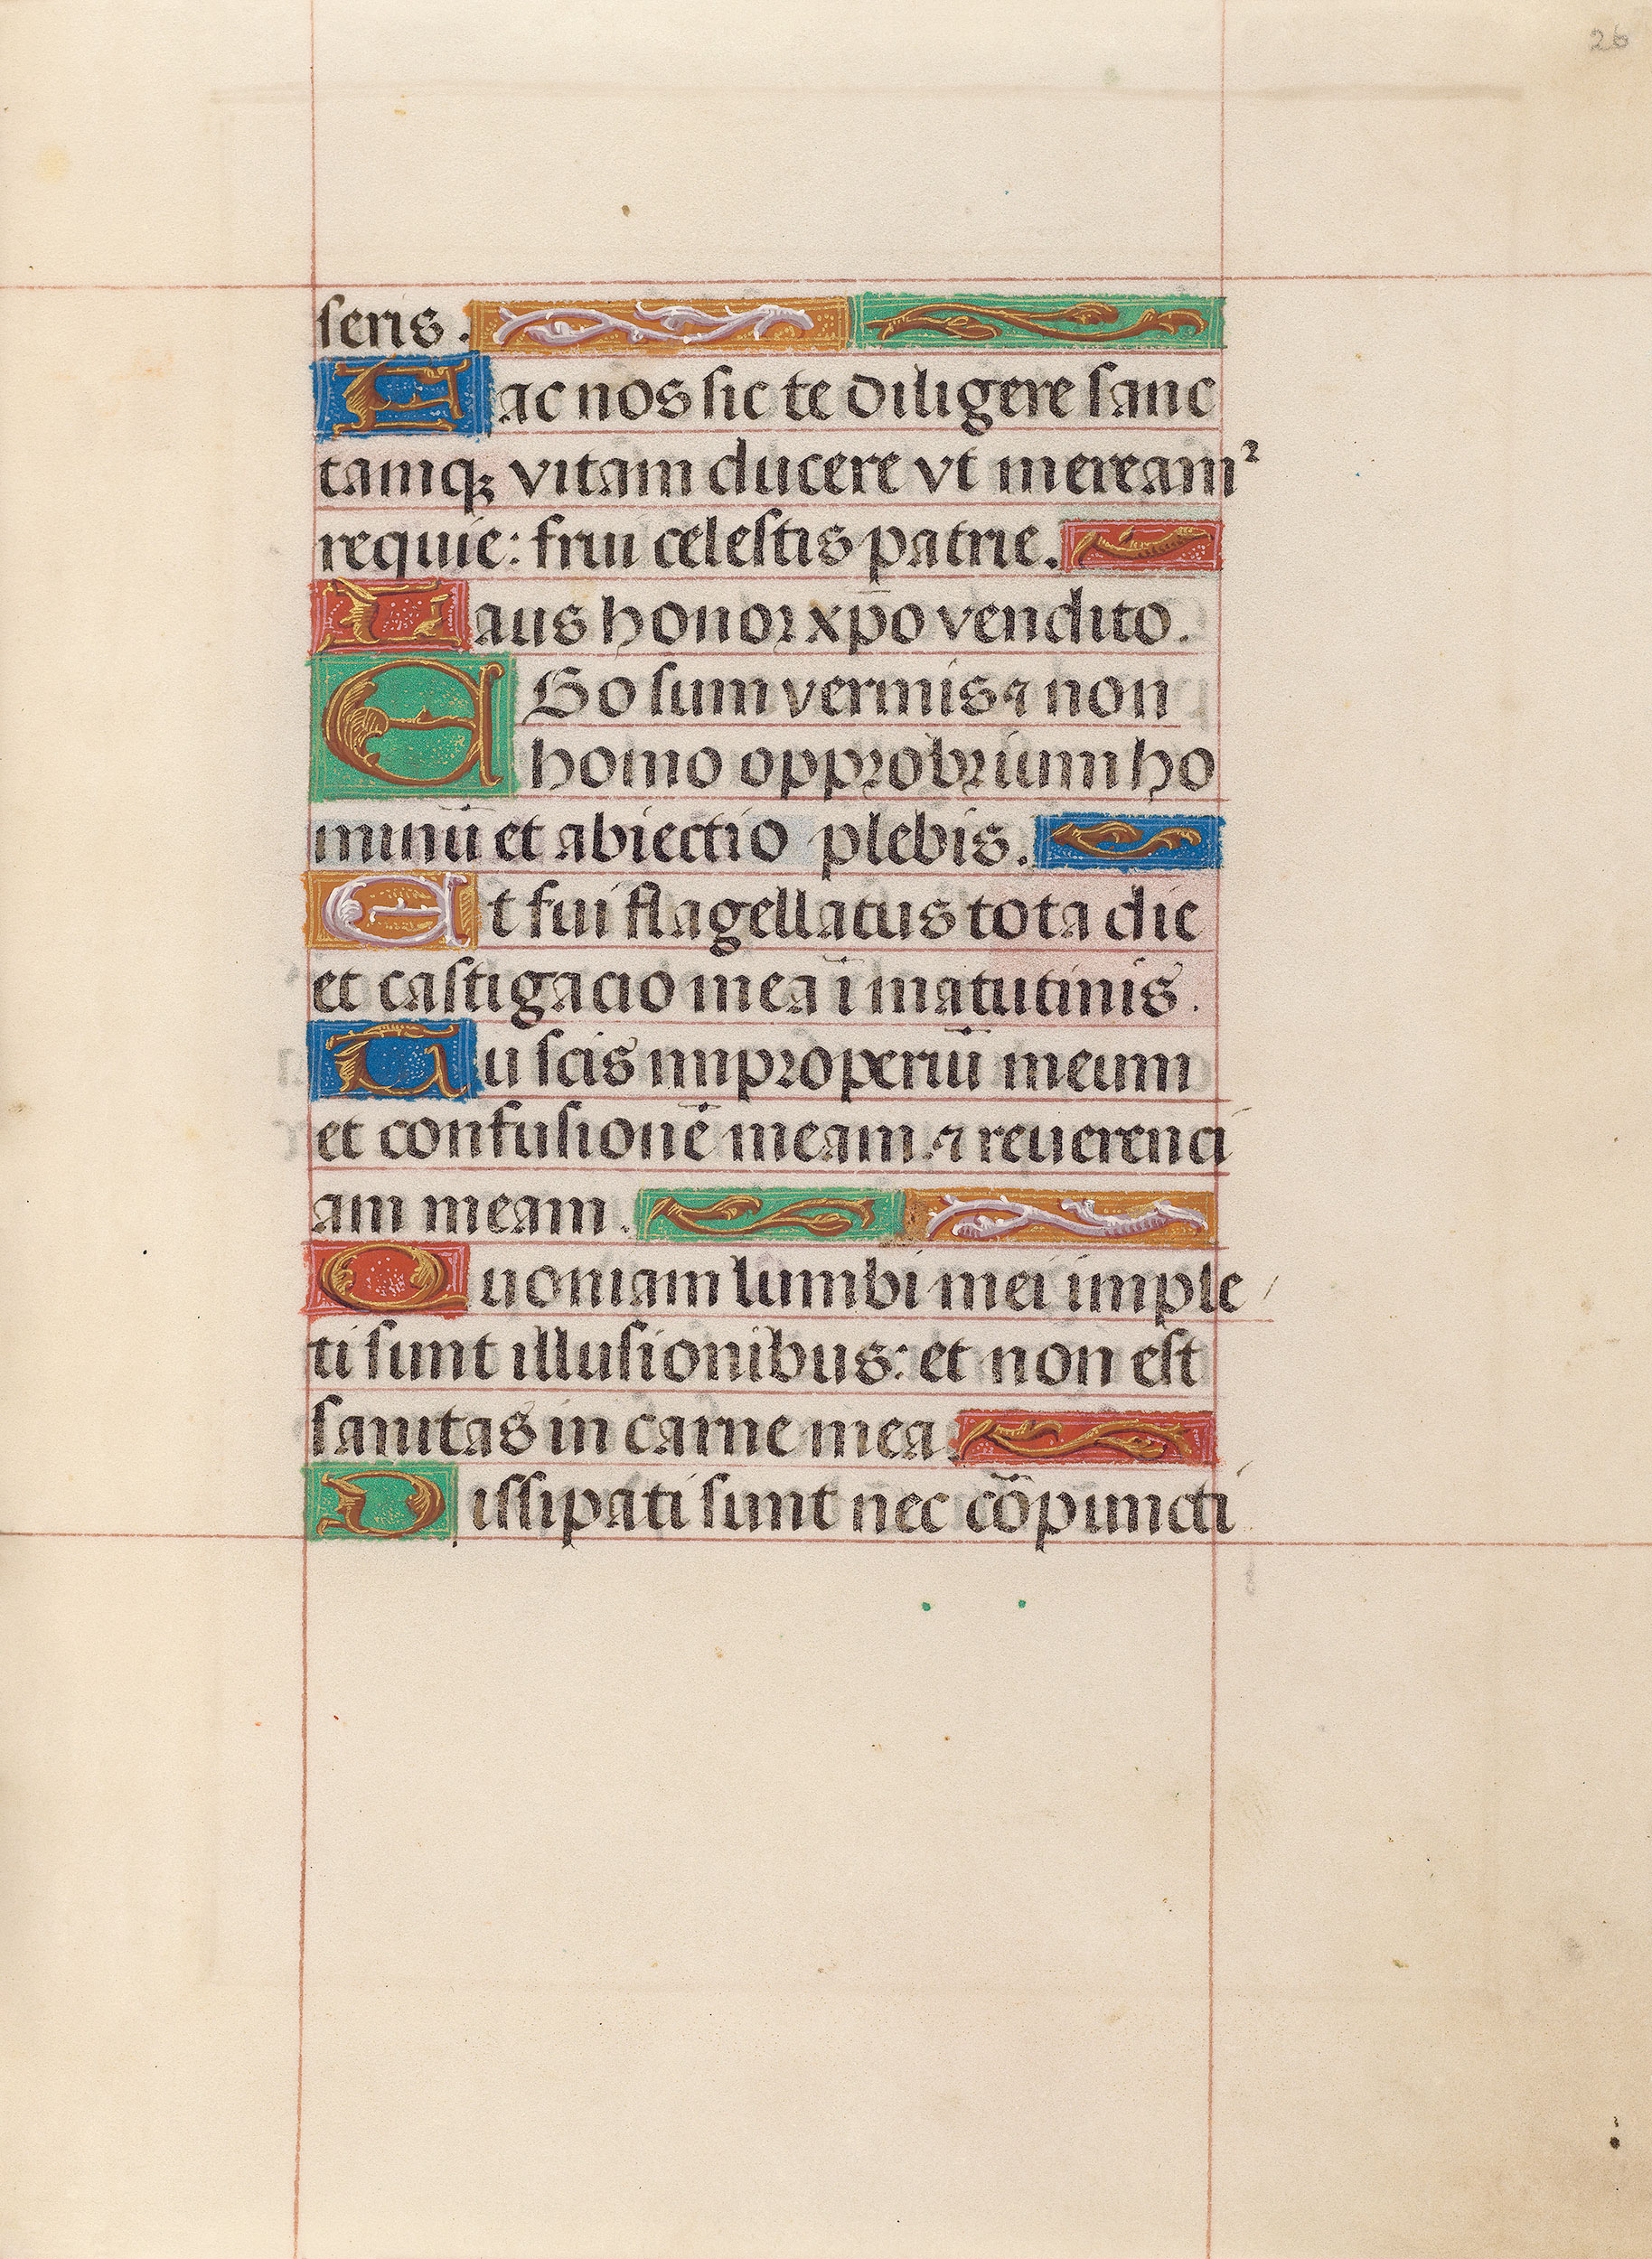 26
seris.
Fac nos sic te diligere sanc
tamqꝫ vitam ducere vt meream²
requie: frui celestis patrie.
Laus honor xp̄o vendito.
EGo sum vermis ⁊ non
homo opprobrium ho
minū et abiectio plebis.
Et fui flagellatus tota die
et castigacio mea ī matutinis.
Tu scis improperiū meum
et confusionē meam. ⁊ reuerenci
am meam.
Quoniam lumbi mei imple
ti sunt illusionibus: et non est
sanitas in carne mea.
Dissipati sunt nec cōpuncti